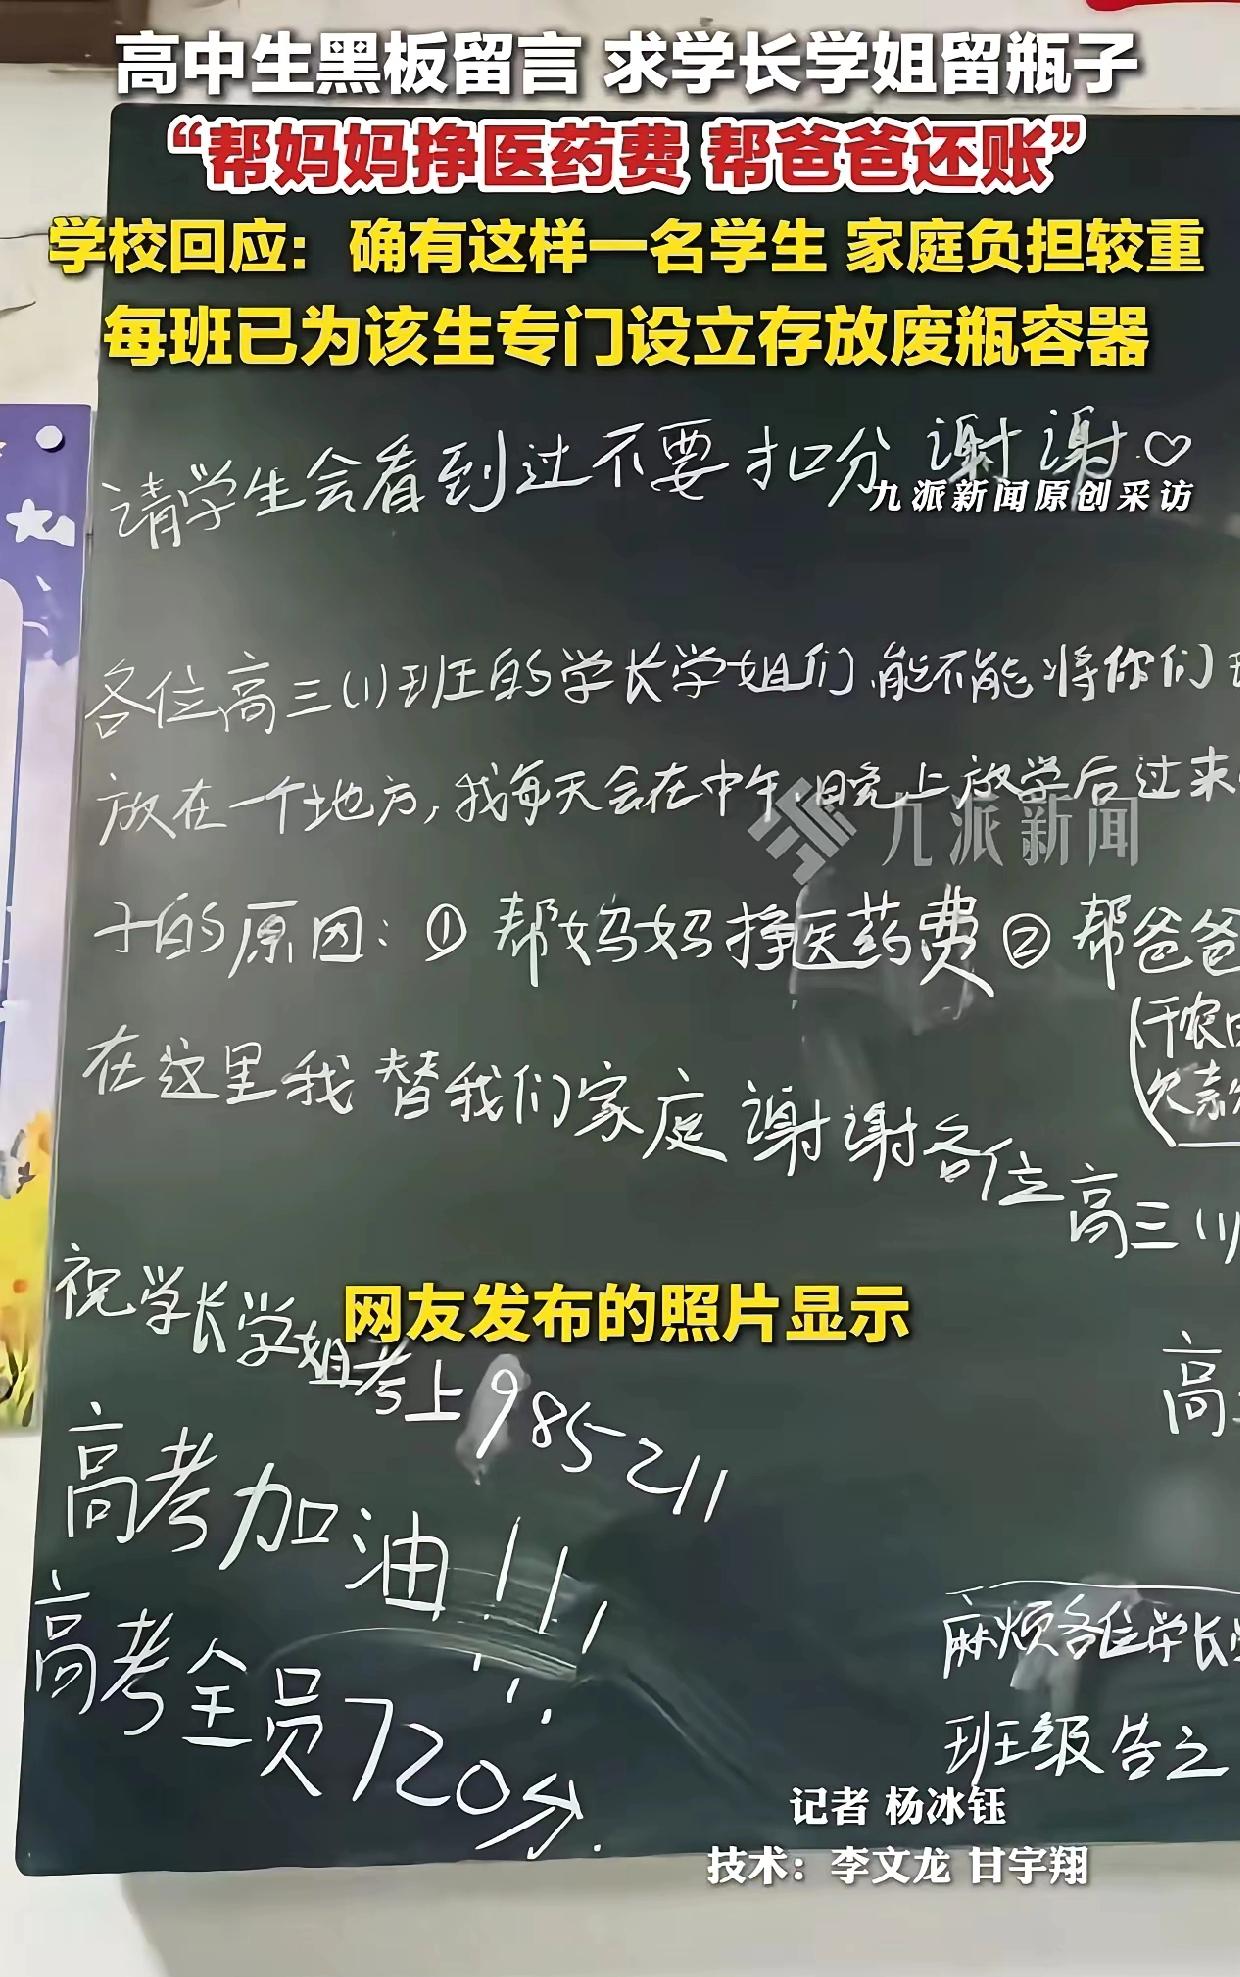 高中生黑板留言 求学长学姐留瓶子
“帮妈妈挣医药费 帮爸爸还账”
学校回应：确有这样一名学生 家庭负担较重
每班已为该生专门设立存放废瓶容器
请学生会看到过不要扣分 谢谢♡
九派新闻原创采访
各位高三(1)班的学长学姐们,能不能将你们
放在一个地方,我每天会在中午、晚上放学后过来
九派新闻
子的原因:①帮妈妈挣医药费②帮爸爸
(干农
欠款
在这里我替我们家庭谢谢各位高三(1)
祝学长学姐考上985 211
网友发布的照片显示
高
高考加油!!!
高考全员720分.
麻烦各位学长
班级告之
记者 杨冰钰
技术：李文龙 甘宇翔